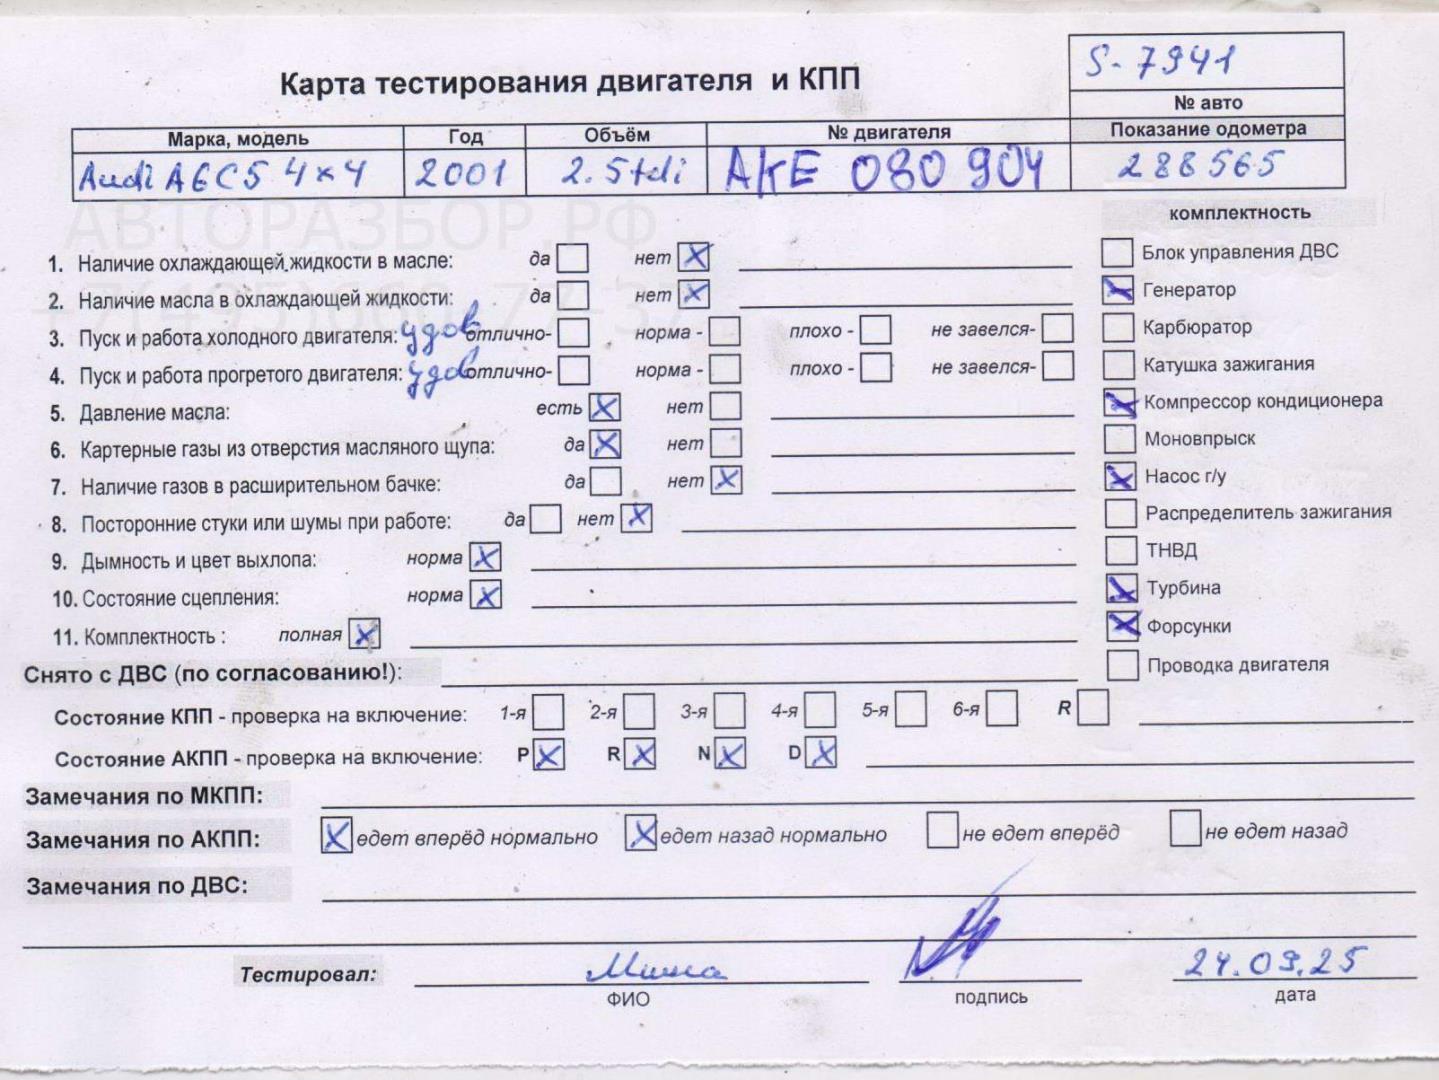 S-7941
Карта тестирования двигателя и КПП
№ авто
Марка, модель Год Объём № двигателя Показание одометра
Audi A6C5 4x4 2001 2.5tdi AKE 080 904 288565
АВТОРАЗБОР.РФ
комплектность
1. Наличие охлаждающей жидкости в масле: да нет Блок управления ДВС
2. Наличие масла в охлаждающей жидкости: да нет Генератор
3. Пуск и работа холодного двигателя: удов отлично- норма - плохо - не завелся- Карбюратор
4. Пуск и работа прогретого двигателя: удов отлично- норма - плохо - не завелся- Катушка зажигания
5. Давление масла: есть нет Компрессор кондиционера
6. Картерные газы из отверстия масляного щупа: да нет Моновпрыск
7. Наличие газов в расширительном бачке: да нет Насос г/у
8. Посторонние стуки или шумы при работе: да нет Распределитель зажигания
9. Дымность и цвет выхлопа: норма ТНВД
10. Состояние сцепления: норма Турбина
11. Комплектность : полная Форсунки
Снято с ДВС (по согласованию!): Проводка двигателя
Состояние КПП - проверка на включение: 1-я 2-я 3-я 4-я 5-я 6-я R
Состояние АКПП - проверка на включение: P R N D
Замечания по МКПП:
Замечания по АКПП: едет вперёд нормально едет назад нормально не едет вперёд не едет назад
Замечания по ДВС:
Тестировал: 24.09.25
ФИО подпись дата